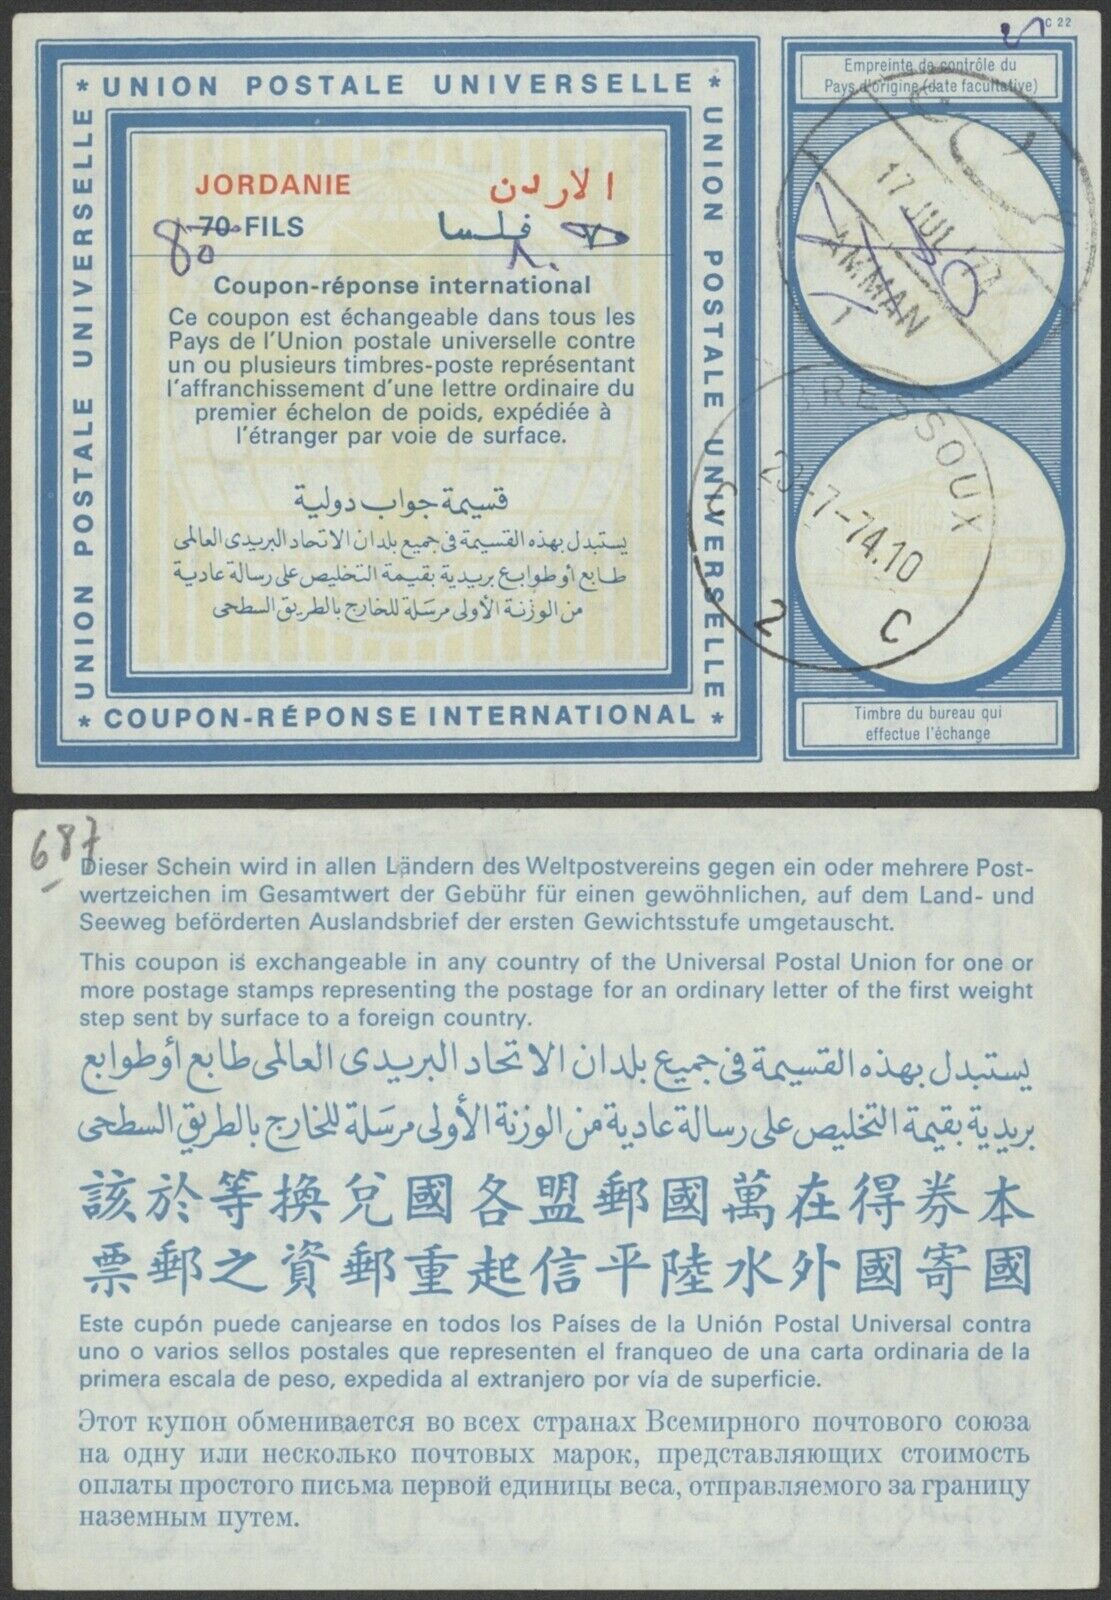 C 22
* UNION POSTALE UNIVERSELLE *
UNION POSTALE UNIVERSELLE
UNION POSTALE UNIVERSELLE
* COUPON-RÉPONSE INTERNATIONAL *
JORDANIE الاردن
70 FILS فلسا ٧٠
80 ٨٠
Coupon-réponse international
Ce coupon est échangeable dans tous les
Pays de l'Union postale universelle contre
un ou plusieurs timbres-poste représentant
l'affranchissement d'une lettre ordinaire du
premier échelon de poids, expédiée à
l'étranger par voie de surface.
قسيمة جواب دولية
يستبدل بهذه القسيمة في جميع بلدان الاتحاد البريدى العالمى
طابع أو طوابع بريدية بقيمة التخليص على رسالة عادية
من الوزنة الأولى مرسَلة للخارج بالطريق السطحى
Empreinte de contrôle du
Pays d'origine (date facultative)
17 JUL '74
AMMAN
1
RESSOUX
23-7-74.10
2 C
Timbre du bureau qui
effectue l'échange
687
Dieser Schein wird in allen Ländern des Weltpostvereins gegen ein oder mehrere Post-
wertzeichen im Gesamtwert der Gebühr für einen gewöhnlichen, auf dem Land- und
Seeweg beförderten Auslandsbrief der ersten Gewichtsstufe umgetauscht.
This coupon is exchangeable in any country of the Universal Postal Union for one or
more postage stamps representing the postage for an ordinary letter of the first weight
step sent by surface to a foreign country.
يستبدل بهذه القسيمة في جميع بلدان الاتحاد البريدى العالمى طابع أو طوابع
بريدية بقيمة التخليص على رسالة عادية من الوزنة الأولى مرسَلة للخارج بالطريق السطحى
該於等換兌國各盟郵國萬在得券本
票郵之資郵重起信平陸水外國寄國
Este cupón puede canjearse en todos los Países de la Unión Postal Universal contra
uno o varios sellos postales que representen el franqueo de una carta ordinaria de la
primera escala de peso, expedida al extranjero por vía de superficie.
Этот купон обменивается во всех странах Всемирного почтового союза
на одну или несколько почтовых марок, представляющих стоимость
оплаты простого письма первой единицы веса, отправляемого за границу
наземным путем.